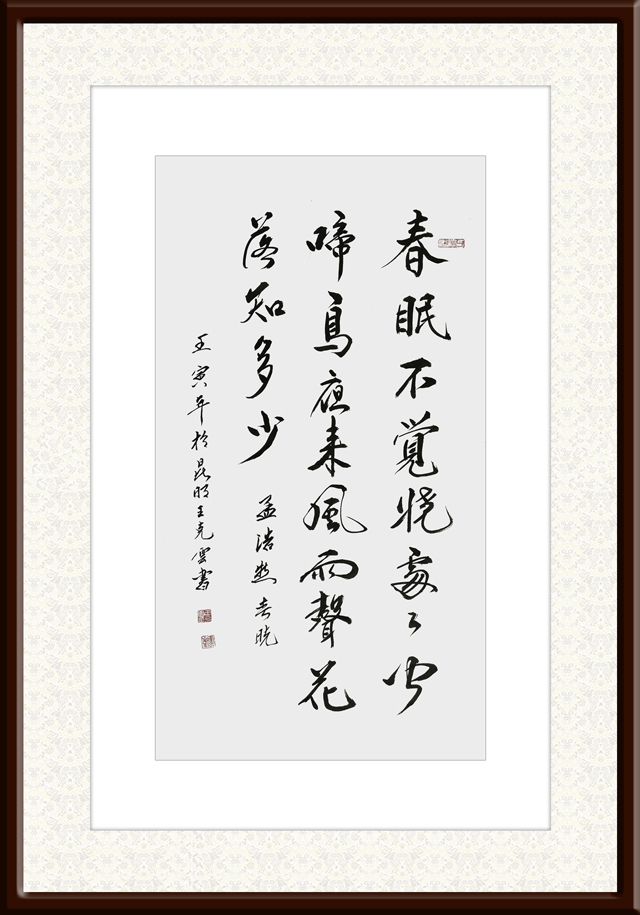 春眠不覚晓處々聞
啼鳥夜来風雨聲花
落知多少 孟浩然春晓
壬寅年於昆明王克雲書